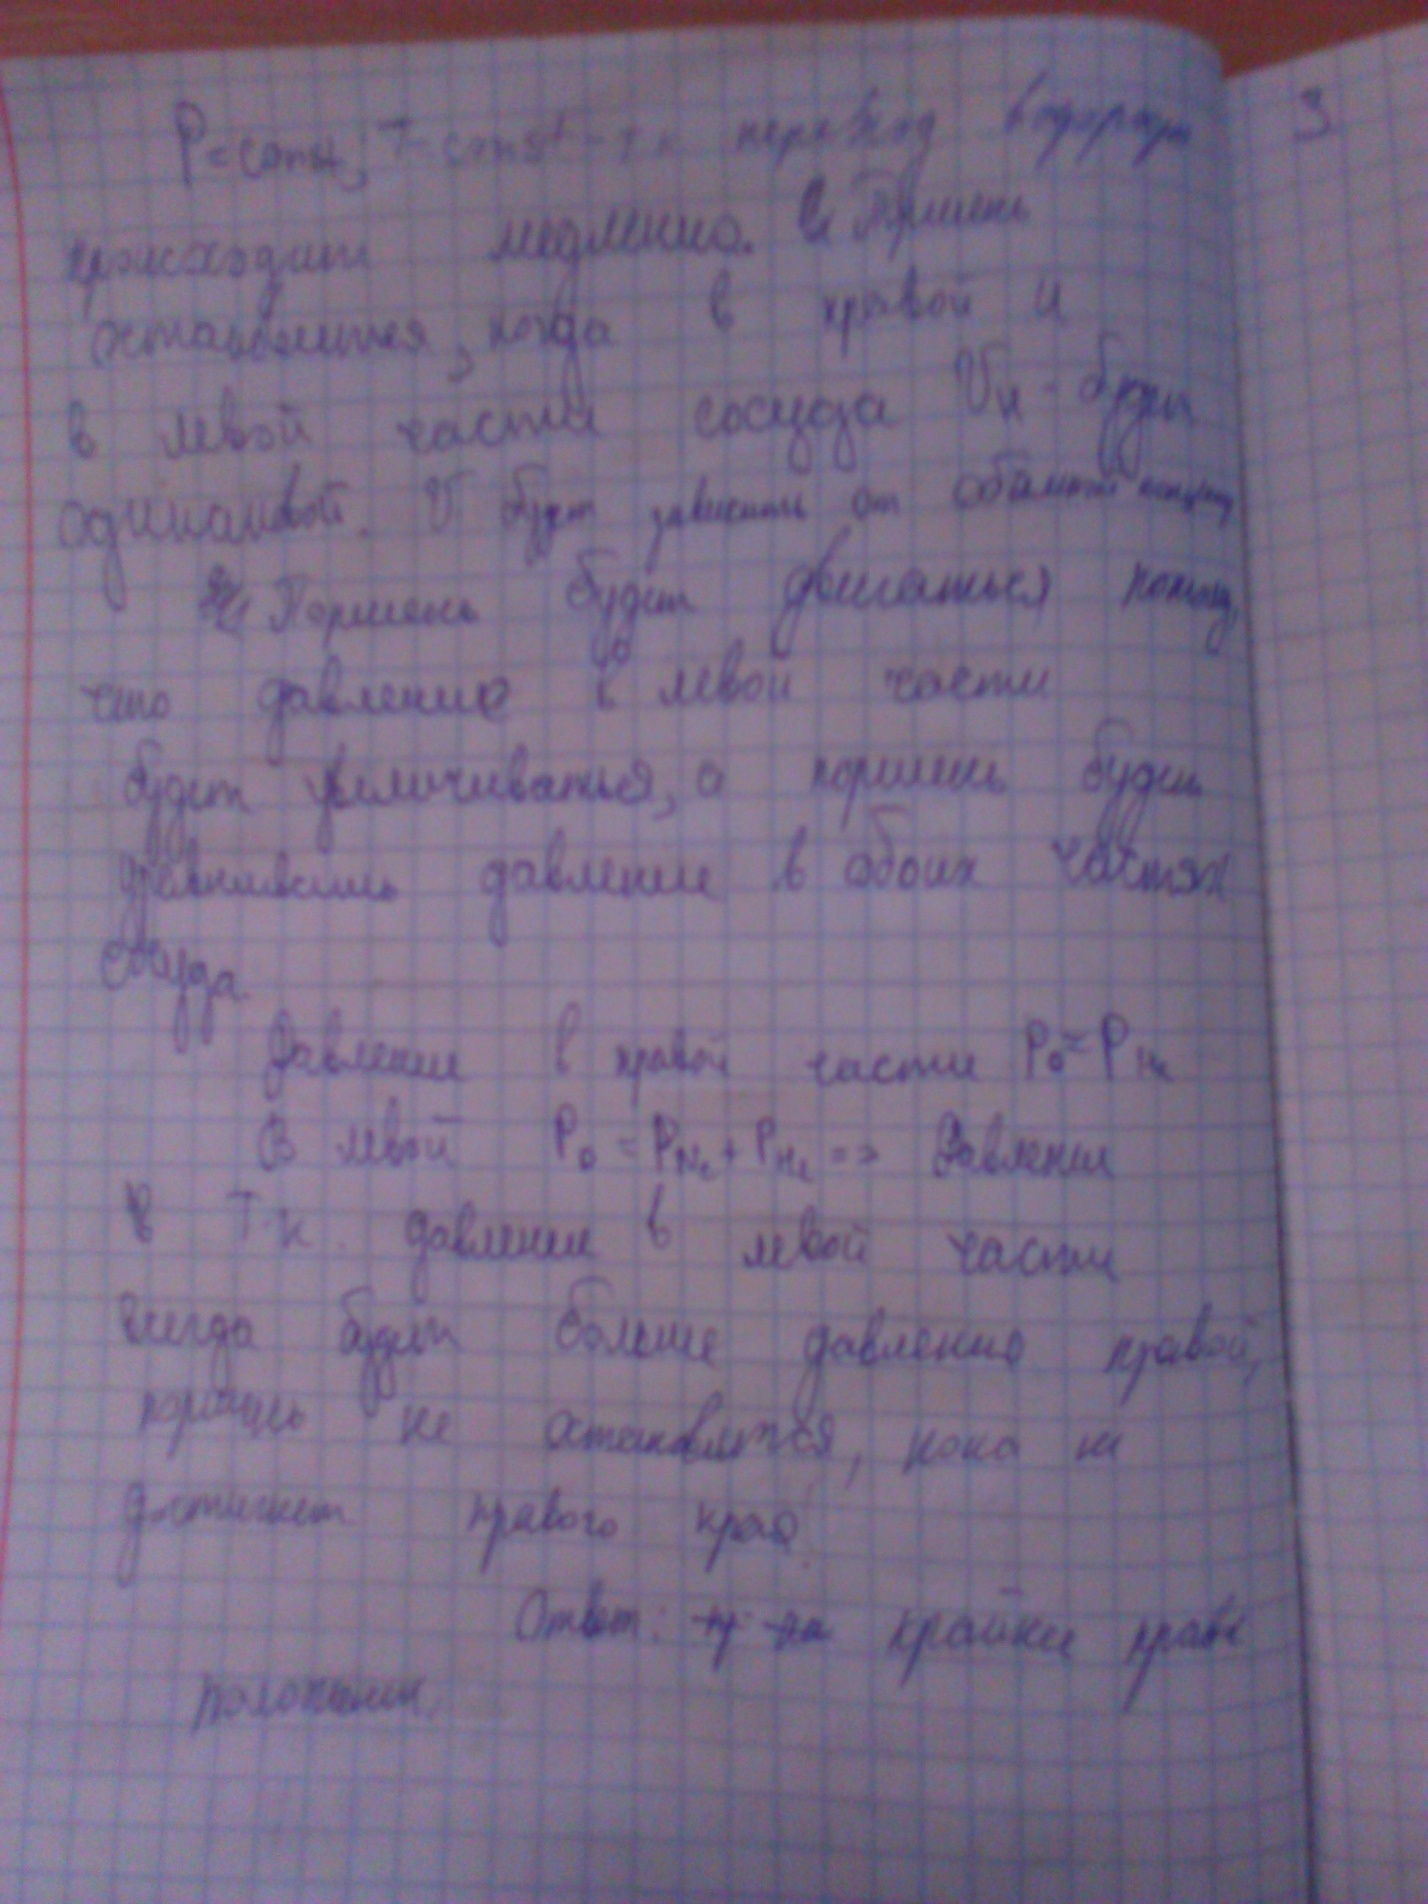 P=const; T-const-т.к переход водорода
3
происходит медленно. Поршень
остановится, когда в правой и
в левой части сосуда Vн - будет
одинаковой. V будет зависить от
Поршень будет двигаться потому,
что давление в левой части
будет увеличиваться, а поршень будет
уравнивать давление в обоих частях
сосуда
Давление в правой части P₀=P H₂
В левой P₀=P N₂+P H₂=> Давление
в Т.к. давление в левой части
всегда будет больше давления правой,
поршень не остановится, пока не
достигнет правого края.
Ответ: крайнее правое
положение.